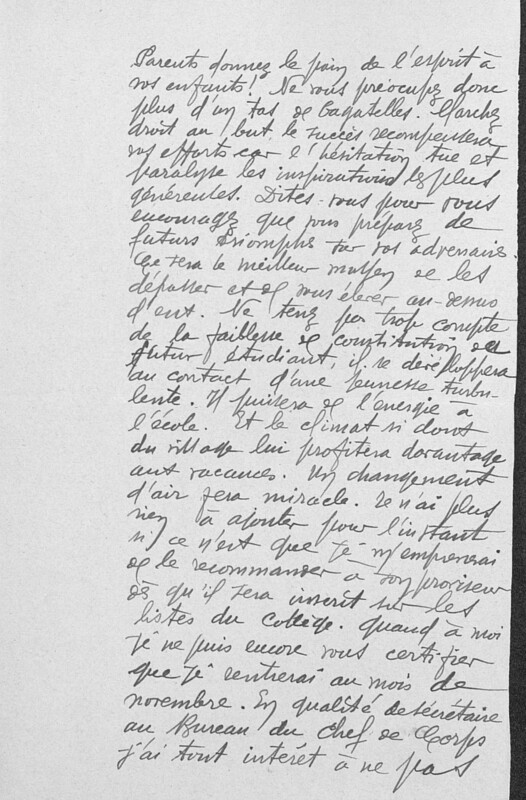 Parents donnez le pain de l'esprit à
vos enfants! Ne vous préocupez donc
plus d'un tas de bagatelles. Marchez
droit au but, le succès recompensera
vos efforts car l'hésitation tue et
paralyse les inspirations les plus
généreuses. Dites-vous pour vous
encouragez que vous préparez de
futurs triomphes sur vos adversaires.
Ce sera le meilleur moyen de les
dépasser et de vous élever au-dessus
d'eux. Ne tenez pas trop compte
de la faiblesse de constitution du
futur étudiant, il se développera
au contact d'une jeunesse turbu-
lente. Il puisera de l'énergie à
l'école. Et le climat si doux
du village lui profitera davantage
aux vacances. Un changement
d'air fera miracle. Je n'ai plus
rien à ajouter pour l'instant
si ce n'est que je m'empresserai
de le recommander à son proviseur
dès qu'il sera inscrit sur les
listes du collège. Quand à moi
je ne puis encore vous certifier
que je rentrerai au mois de
novembre. En qualité de secrétaire
au Bureau du Chef de Corps
j'ai tout intérêt à ne pas